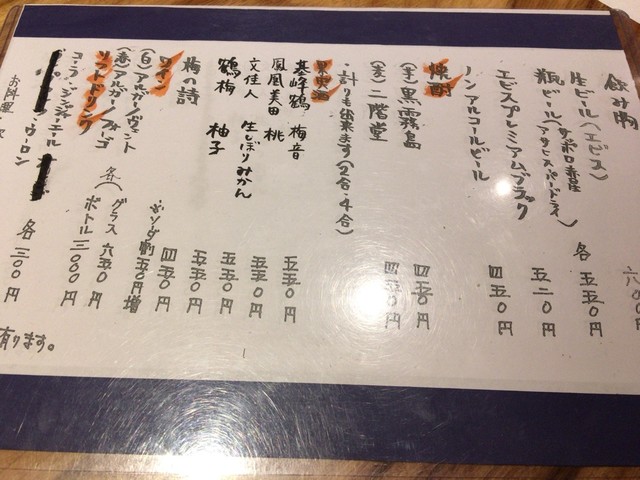 飲み物
生ビール(エビス) 六〇〇円
瓶ビール(サッポロ赤星 各 五五〇円
アサヒスーパードライ)
エビスプレミアムブラック 五二〇円
ノンアルコールビール 四五〇円
焼酎
(芋)黒霧島 四五〇円
(麦)二階堂 四五〇円
・計りも出来ます(2合・4合)
果実酒
基峰鶴 梅音 五五〇円
鳳凰美田 桃 五五〇円
文佳人 生しぼりみかん 五五〇円
鶴梅 柚子 五五〇円
梅の詩 四五〇円
※ソーダ割 五〇円増
ワイン
(白)アルガーノヴェント 各(グラス 六五〇円
(赤)アルガーノフォーゴ ボトル 三〇〇〇円
ソフトドリンク
コーラ・ジンジャエール
ウーロン 各 三〇〇円
お料理
有ります。